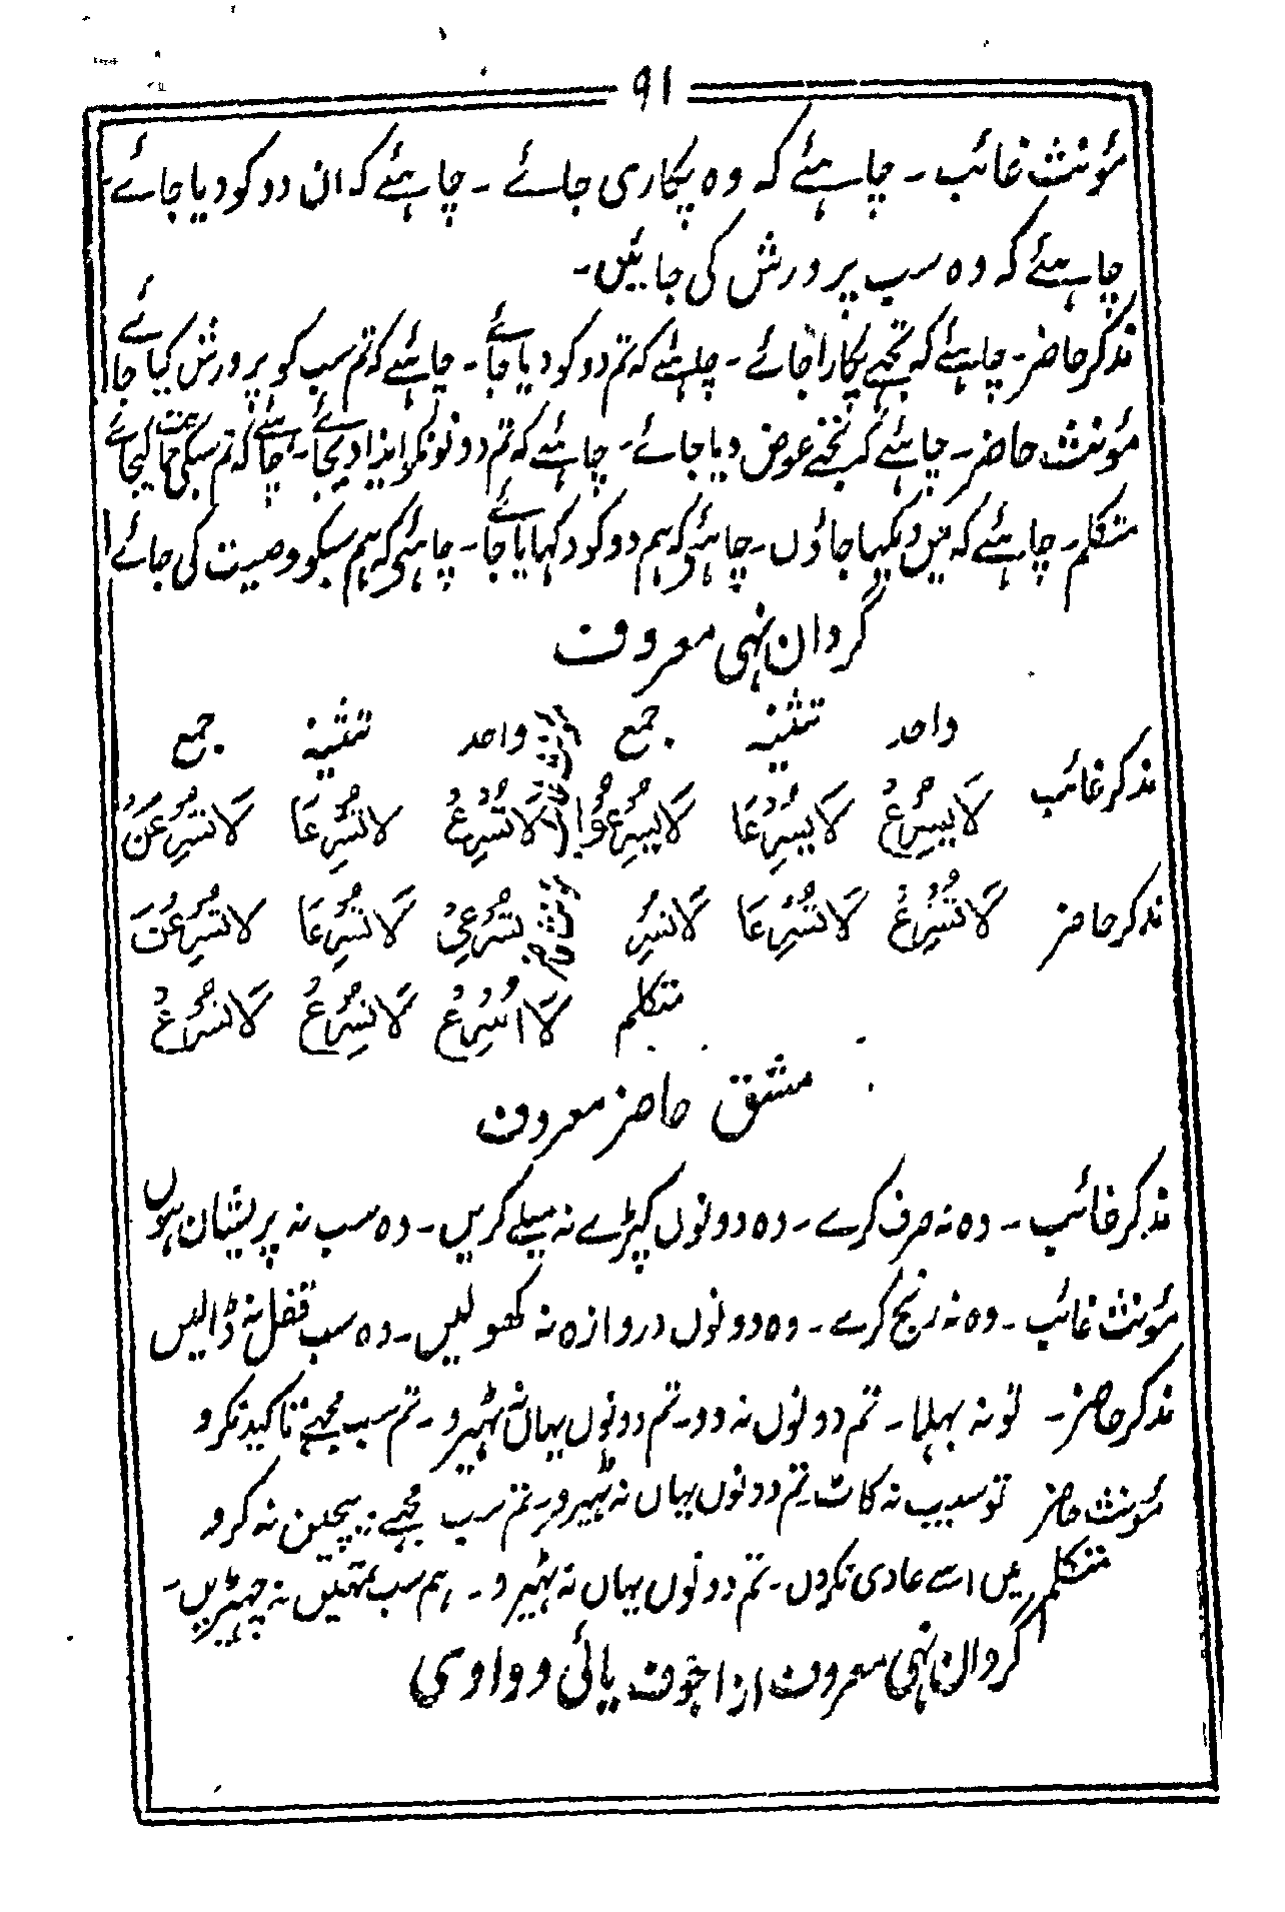 ۹۱
مؤنث غائب ۔ چاہئے کہ وہ پکاری جائے ۔ چاہئے کہ ان دو کو دیا جائے ۔
چاہئے کہ وہ سب پرورش کی جائیں ۔
مذکر حاضر ۔ چاہئے کہ تجھے پکارا جائے ۔ چاہئے کہ تم دو کو دیا جائے ۔ چاہئے کہ تم سب کو پرورش کیا جائے
مؤنث حاضر ۔ چاہئے کہ تجھے عوض دیا جائے ۔ چاہئے کہ تم دونونکو ایذا دیجائے ۔ چاہئے کہ تم سبکی کیجائے
متکلم ۔ چاہئے کہ میں دیکہا جاؤں ۔ چاہئے کہ ہم دو کو دکہایا جائے ۔ چاہئے کہ ہم سبکو وصیت کی جائے
گردان نہی معروف
واحد تثنیہ جمع واحد تثنیہ جمع
مذکر غائب لَا يُسْرِعُ لَا يُسْرِعَا لَا يُسْرِعُوْا لَا تُسْرِعُ لا تُسْرِعَا لَا تُسْرِعْنَ
مذکر حاضر لَا تُسْرِعْ لَا تُسْرِعَا لَا تُسْرِ تُسْرِعِيْ لَا تُسْرِعَا لا تُسْرِعْنَ
متکلم لَا اُسْرِعُ لَا نُسْرِعُ لَا نُسْرِعُ
مشق حاضر معروف
مذکر غائب ۔ وہ نہ صرف کرے ۔ وہ دونوں کپڑے نہ میلے کریں ۔ وہ سب نہ پریشان ہوں
مؤنث غائب ۔ وہ نہ رنج کرے ۔ وہ دونوں دروازہ نہ کھولیں ۔ وہ سب قفل نہ ڈالیں
مذکر حاضر ۔ تو نہ بہلا ۔ تم دونوں نہ دو ۔ تم دونوں یہاں نہ ٹہیرو ۔ تم سب مجہے تاکید نکرو
مؤنث حاضر تو سیب نہ کاٹ ۔ تم دونوں یہاں نہ ٹہیرو ۔ تم سب مجہے بیچین نہ کرو
متکلم میں اسے عادی نکروں ۔ تم دونوں یہاں نہ ٹہیرو ۔ ہم سب تمہیں نہ چہیڑیں ۔
گردان نہی معروف از اجوف یائی و واوی